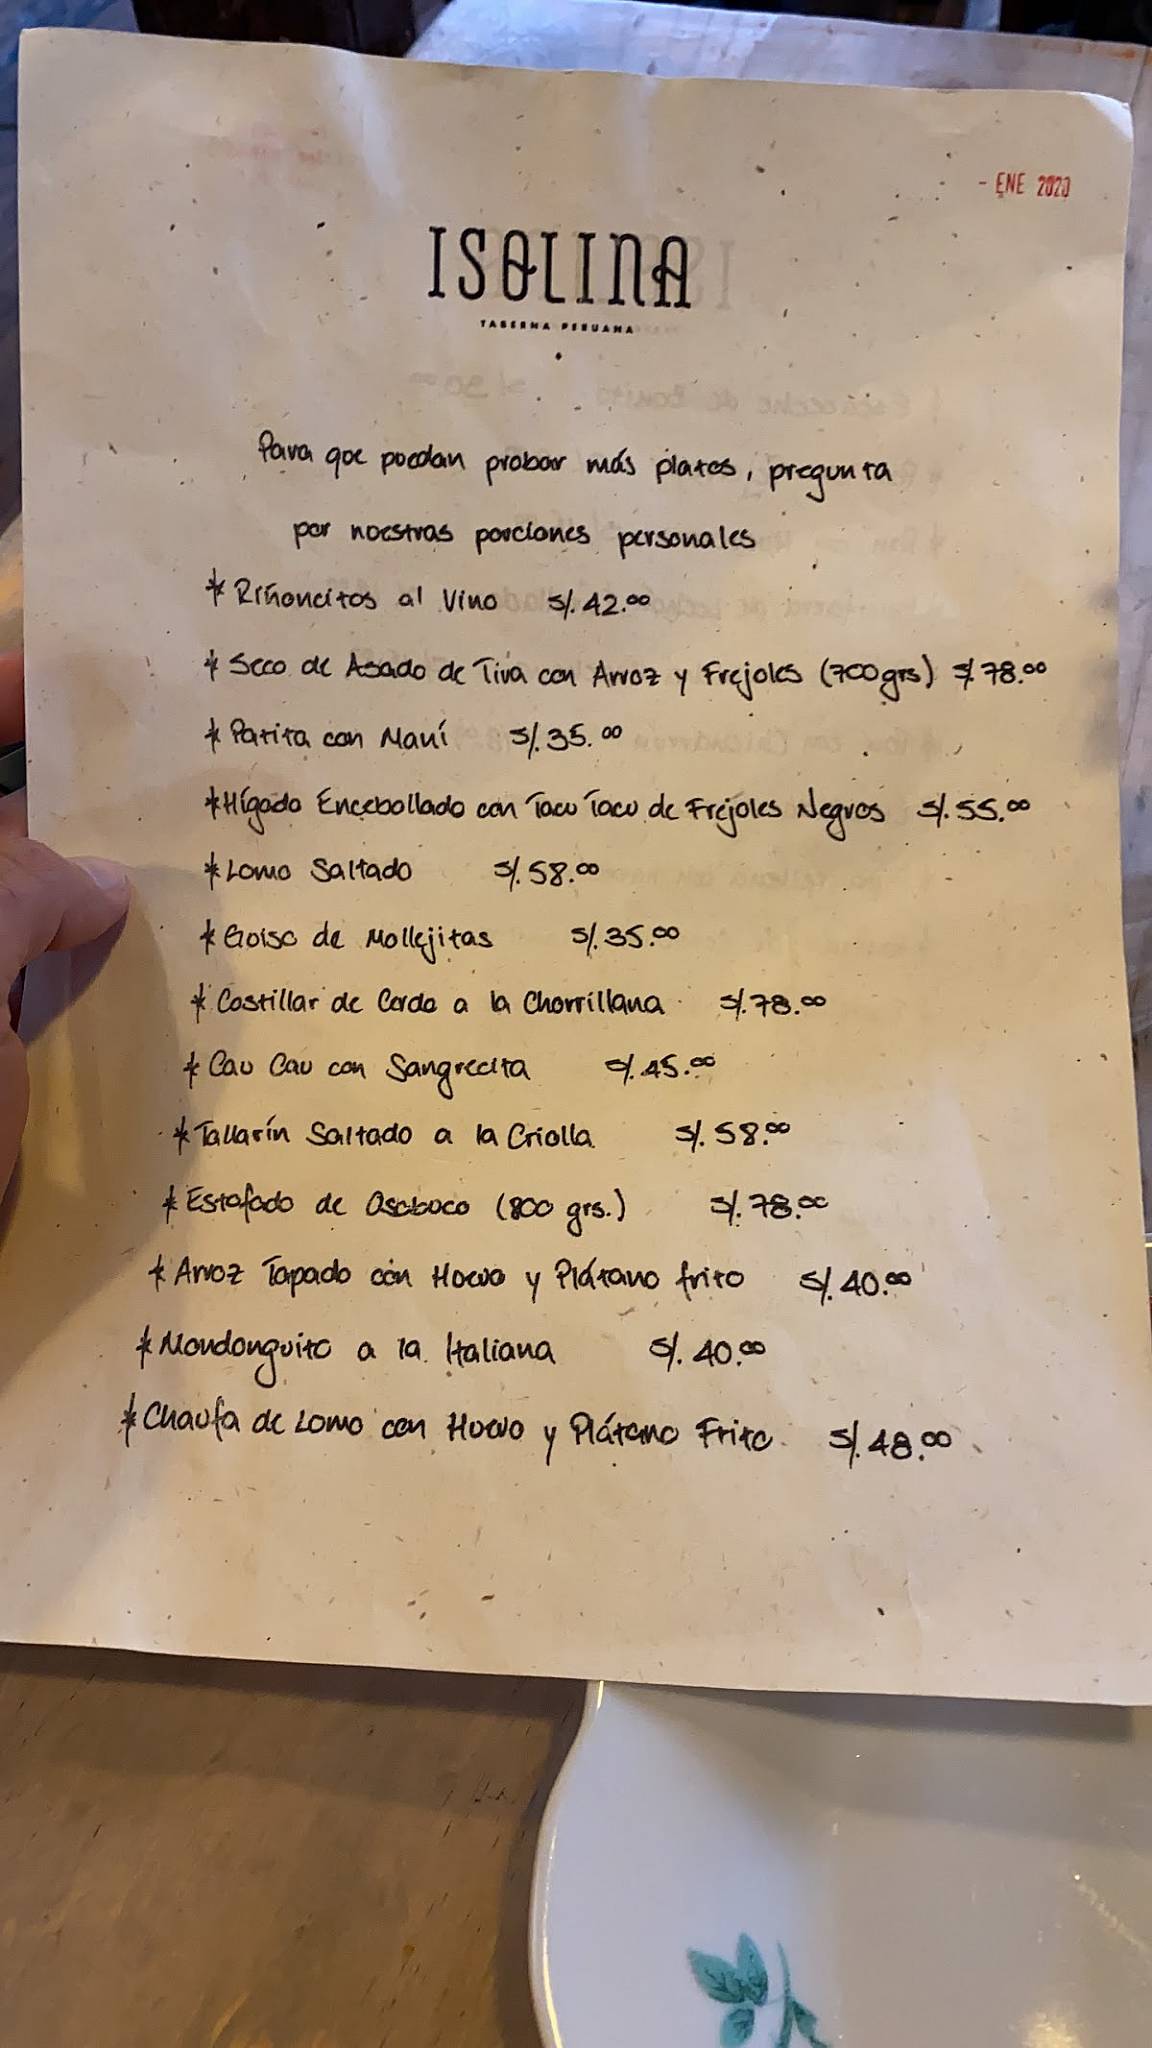 - ENE 2020
ISOLINA
TABERNA PERUANA
Para que puedan probar más platos, pregunta
por nuestras porciones personales
* Riñoncitos al Vino S/. 42.00
* Seco de Asado de Tira con Arroz y Frejoles (700grs) S/. 78.00
* Patita con Maní S/. 35.00
* Hígado Encebollado con Tacu Tacu de Frejoles Negros S/. 55.00
* Lomo Saltado S/. 58.00
* Guiso de Mollejitas S/. 35.00
* Costillar de Cerdo a la Chorrillana S/. 78.00
* Cau Cau con Sangrecita S/. 45.00
* Tallarín Saltado a la Criolla S/. 58.00
* Estofado de Osobuco (800 grs.) S/. 78.00
* Arroz Tapado con Huevo y Plátano frito S/. 40.00
* Mondonguito a la Italiana S/. 40.00
* Chaufa de Lomo con Huevo y Plátano Frito S/. 48.00